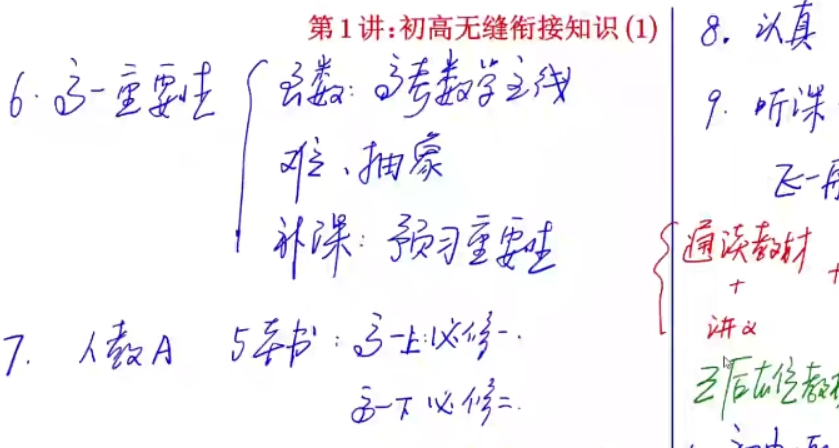 第1讲:初高无缝衔接知识(1)
6. 高一重要性
函数: 高考数学主线
难、抽象
补课: 预习重要性
7. 人教A 5本书: 高一上:必修一.
高一下 必修二.
8. 认真
9. 听课
飞一
通读教材 +
+
讲义